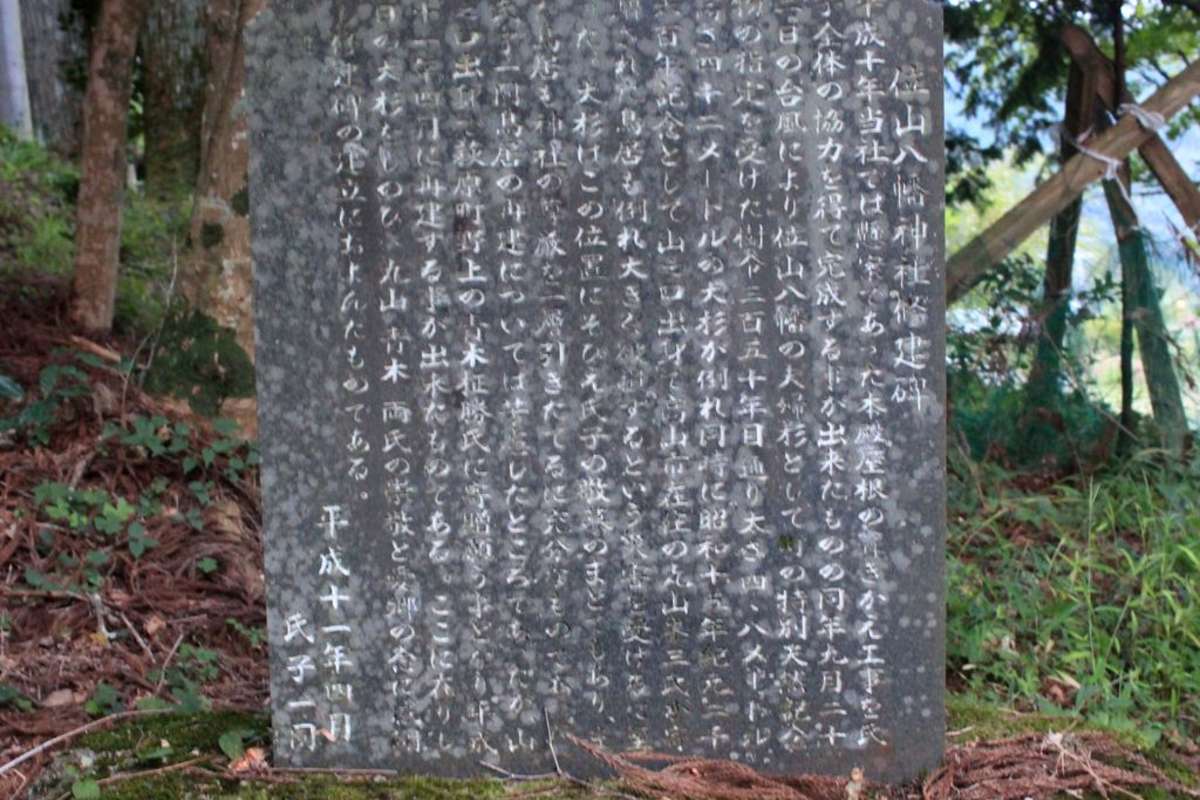 位山八幡神社修建碑
平成十年当社では懸案であった本殿屋根の葺きかえ工事を氏
子全体の協力を得て完成する事が出来たものの同年九月二十
二日の台風により位山八幡の夫婦杉として町の特別天然記念
物の指定を受けた樹令三百五十年目通り太さ四、八メートル
高さ四十二メートルの大杉が倒れ同時に昭和十五年紀元二千
六百年記念として山之口出身で高山市在住の丸山
された鳥居も倒れ大きく破損するという災害を受けるに至
た 大杉はこの位置にそびえ氏子の敬慕のまとでもあり、
鳥居も神社の尊厳を一層引きたてるに充分なもので
一同鳥居の再建については苦慮したところでもったが
出身で萩原町野上の青木征勝氏に寄贈願う事となり平成
十一年四月に再建する事が出来たものである。ここに在りし
日の大杉をしのび 丸山 青木 両氏の崇敬と愛郷の念に
碑の建立におよんだものである。
平成十一年四月
氏子一同